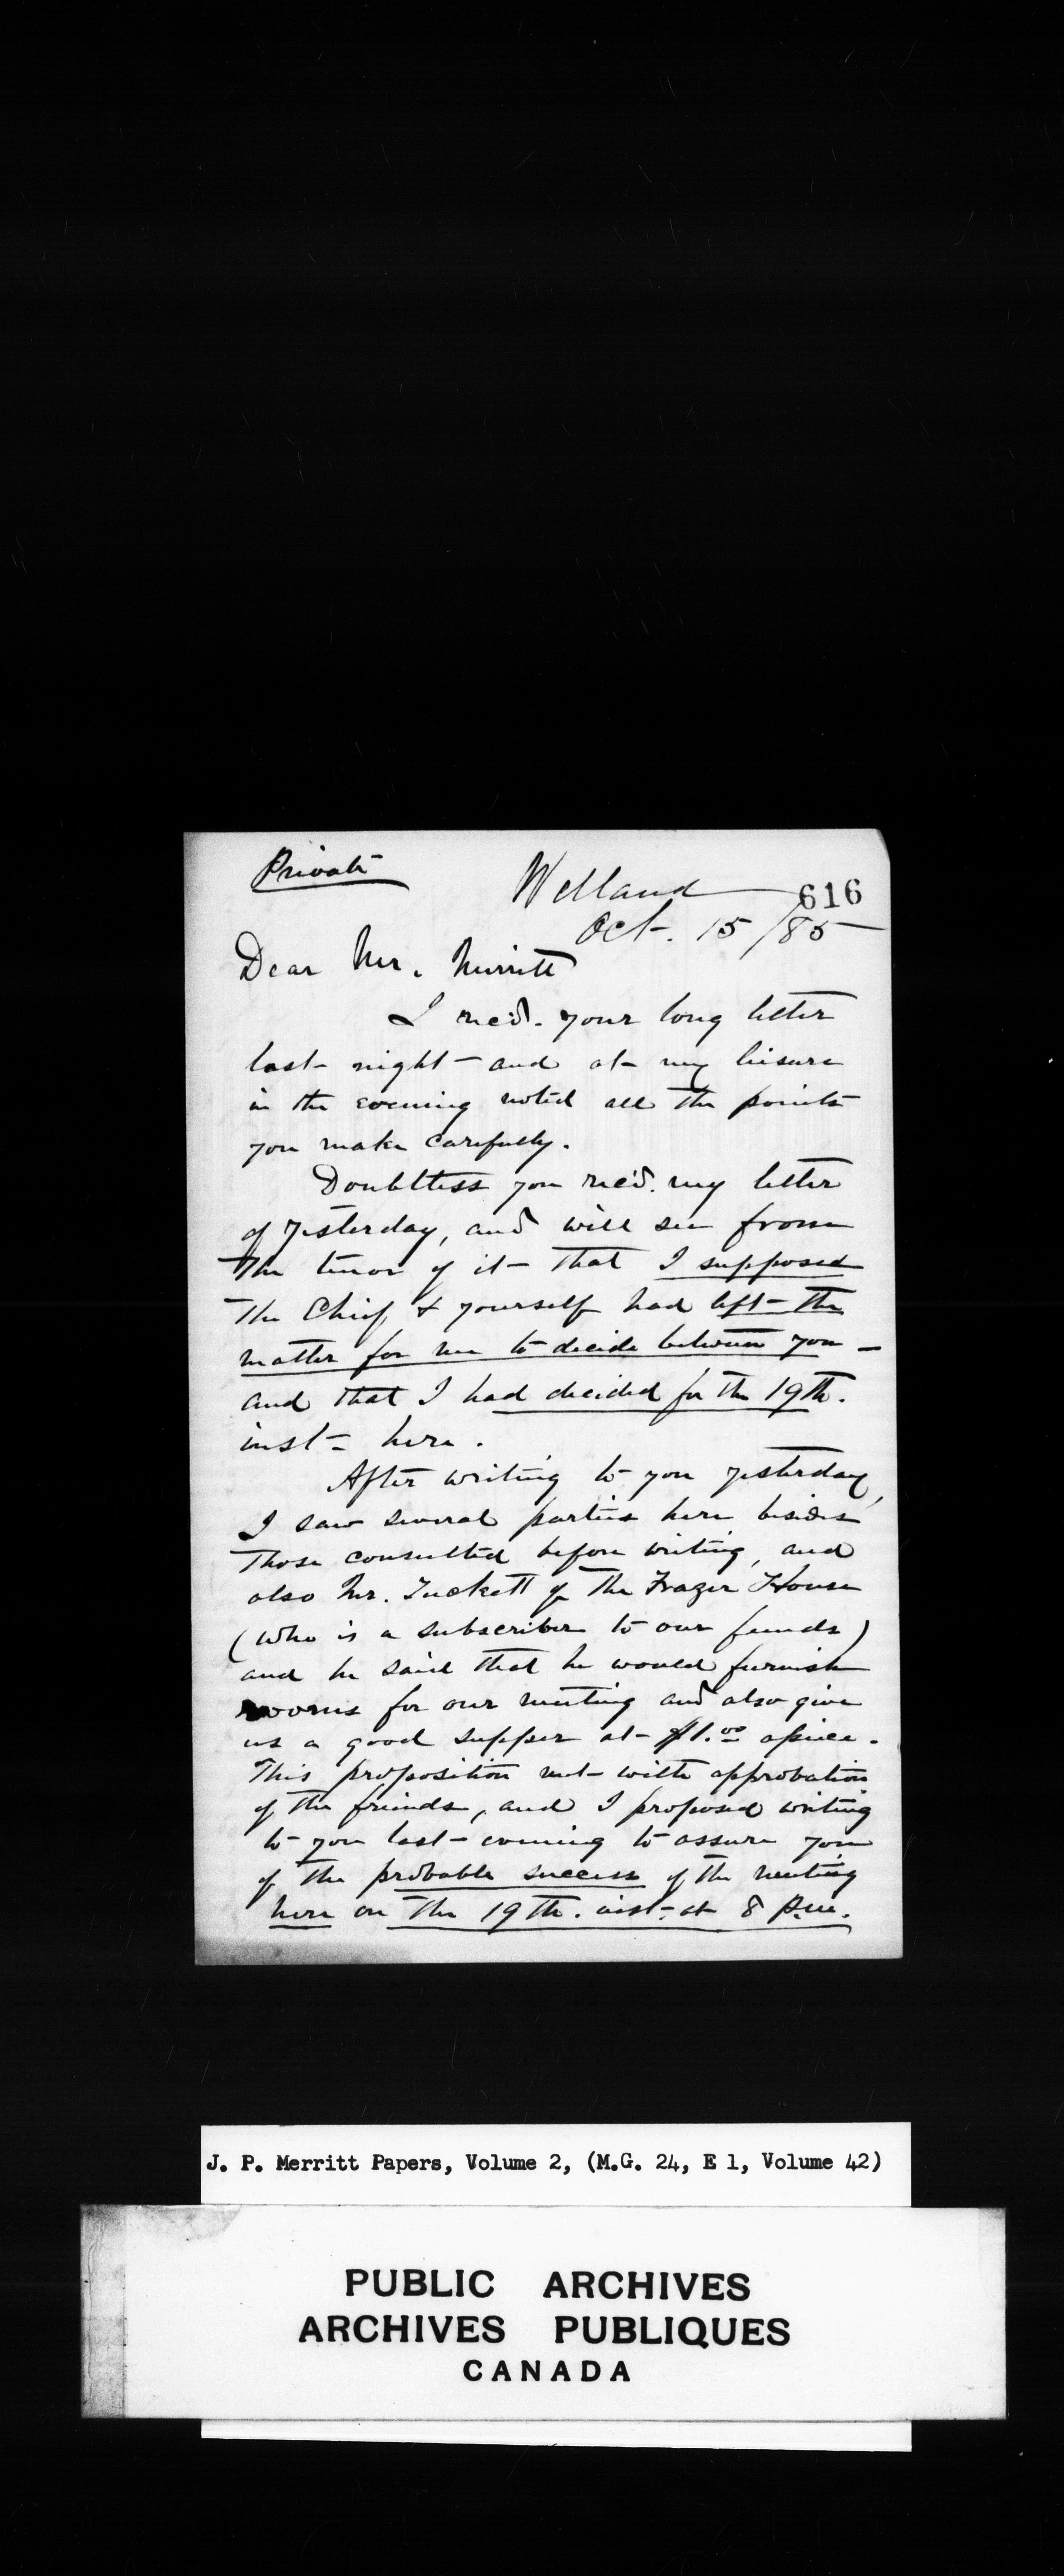 Private
Welland
616
Oct. 15/85
Dear Mr. Merritt
I rec'd. your long letter
last night - and at my leisure
in the evening noted all the points
you make carefully.
Doubtless you rec'd. my letter
of yesterday, and will see from
the tenor of it - that I supposed
the Chief & yourself had left the
matter for me to decide between you -
and that I had decided for the 19th.
inst - here.
After writing to you yesterday,
I saw several parties here besides
those consulted before writing, and
also Mr. Tuckett of the Frazer House
(who is a subscriber to our funds)
and he said that he would furnish
rooms for our meeting and also give
us a good supper at $1.00 apiece.
This proposition met with approbation
of the friends, and I proposed writing
to you last evening to assure you
of the probable success of the meeting
here on the 19th. inst. at 8 p.m.
J. P. Merritt Papers, Volume 2, (M.G. 24, E 1, Volume 42)
PUBLIC ARCHIVES
ARCHIVES PUBLIQUES
CANADA